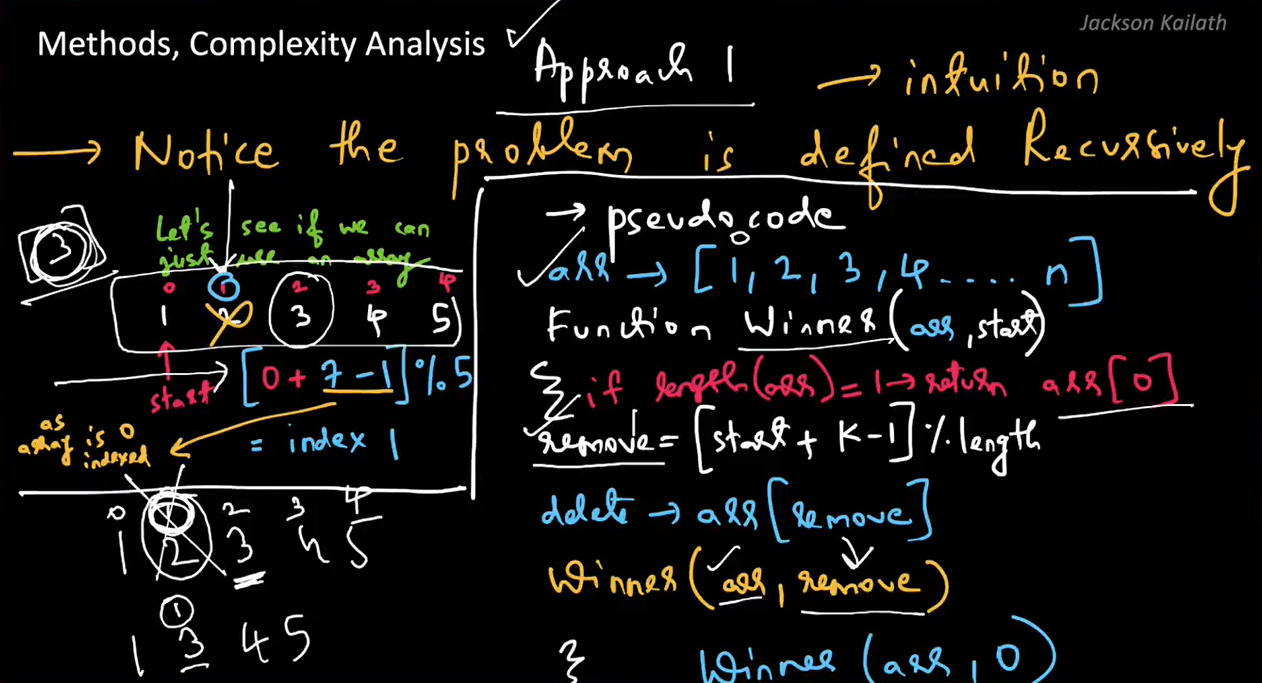 Jackson Kailath
Methods, Complexity Analysis
Approach 1
→ intuition
→ Notice the problem is defined Recursively
3
Let's see if we can
just use an array
0 1 2 3 4
1 2 3 4 5
start
[0 + 7 - 1] % 5
= index 1
as
array is 0
indexed
0 2 3 4
1 2 3 4 5
1
1 3 4 5
→ pseudo code
arr → [1, 2, 3, 4 .... n]
Function Winner(arr, start)
{ if length(arr) = 1 → return arr[0]
remove = [start + K - 1] % length
delete → arr[remove]
Winner(arr, remove)
} Winner(arr, 0)